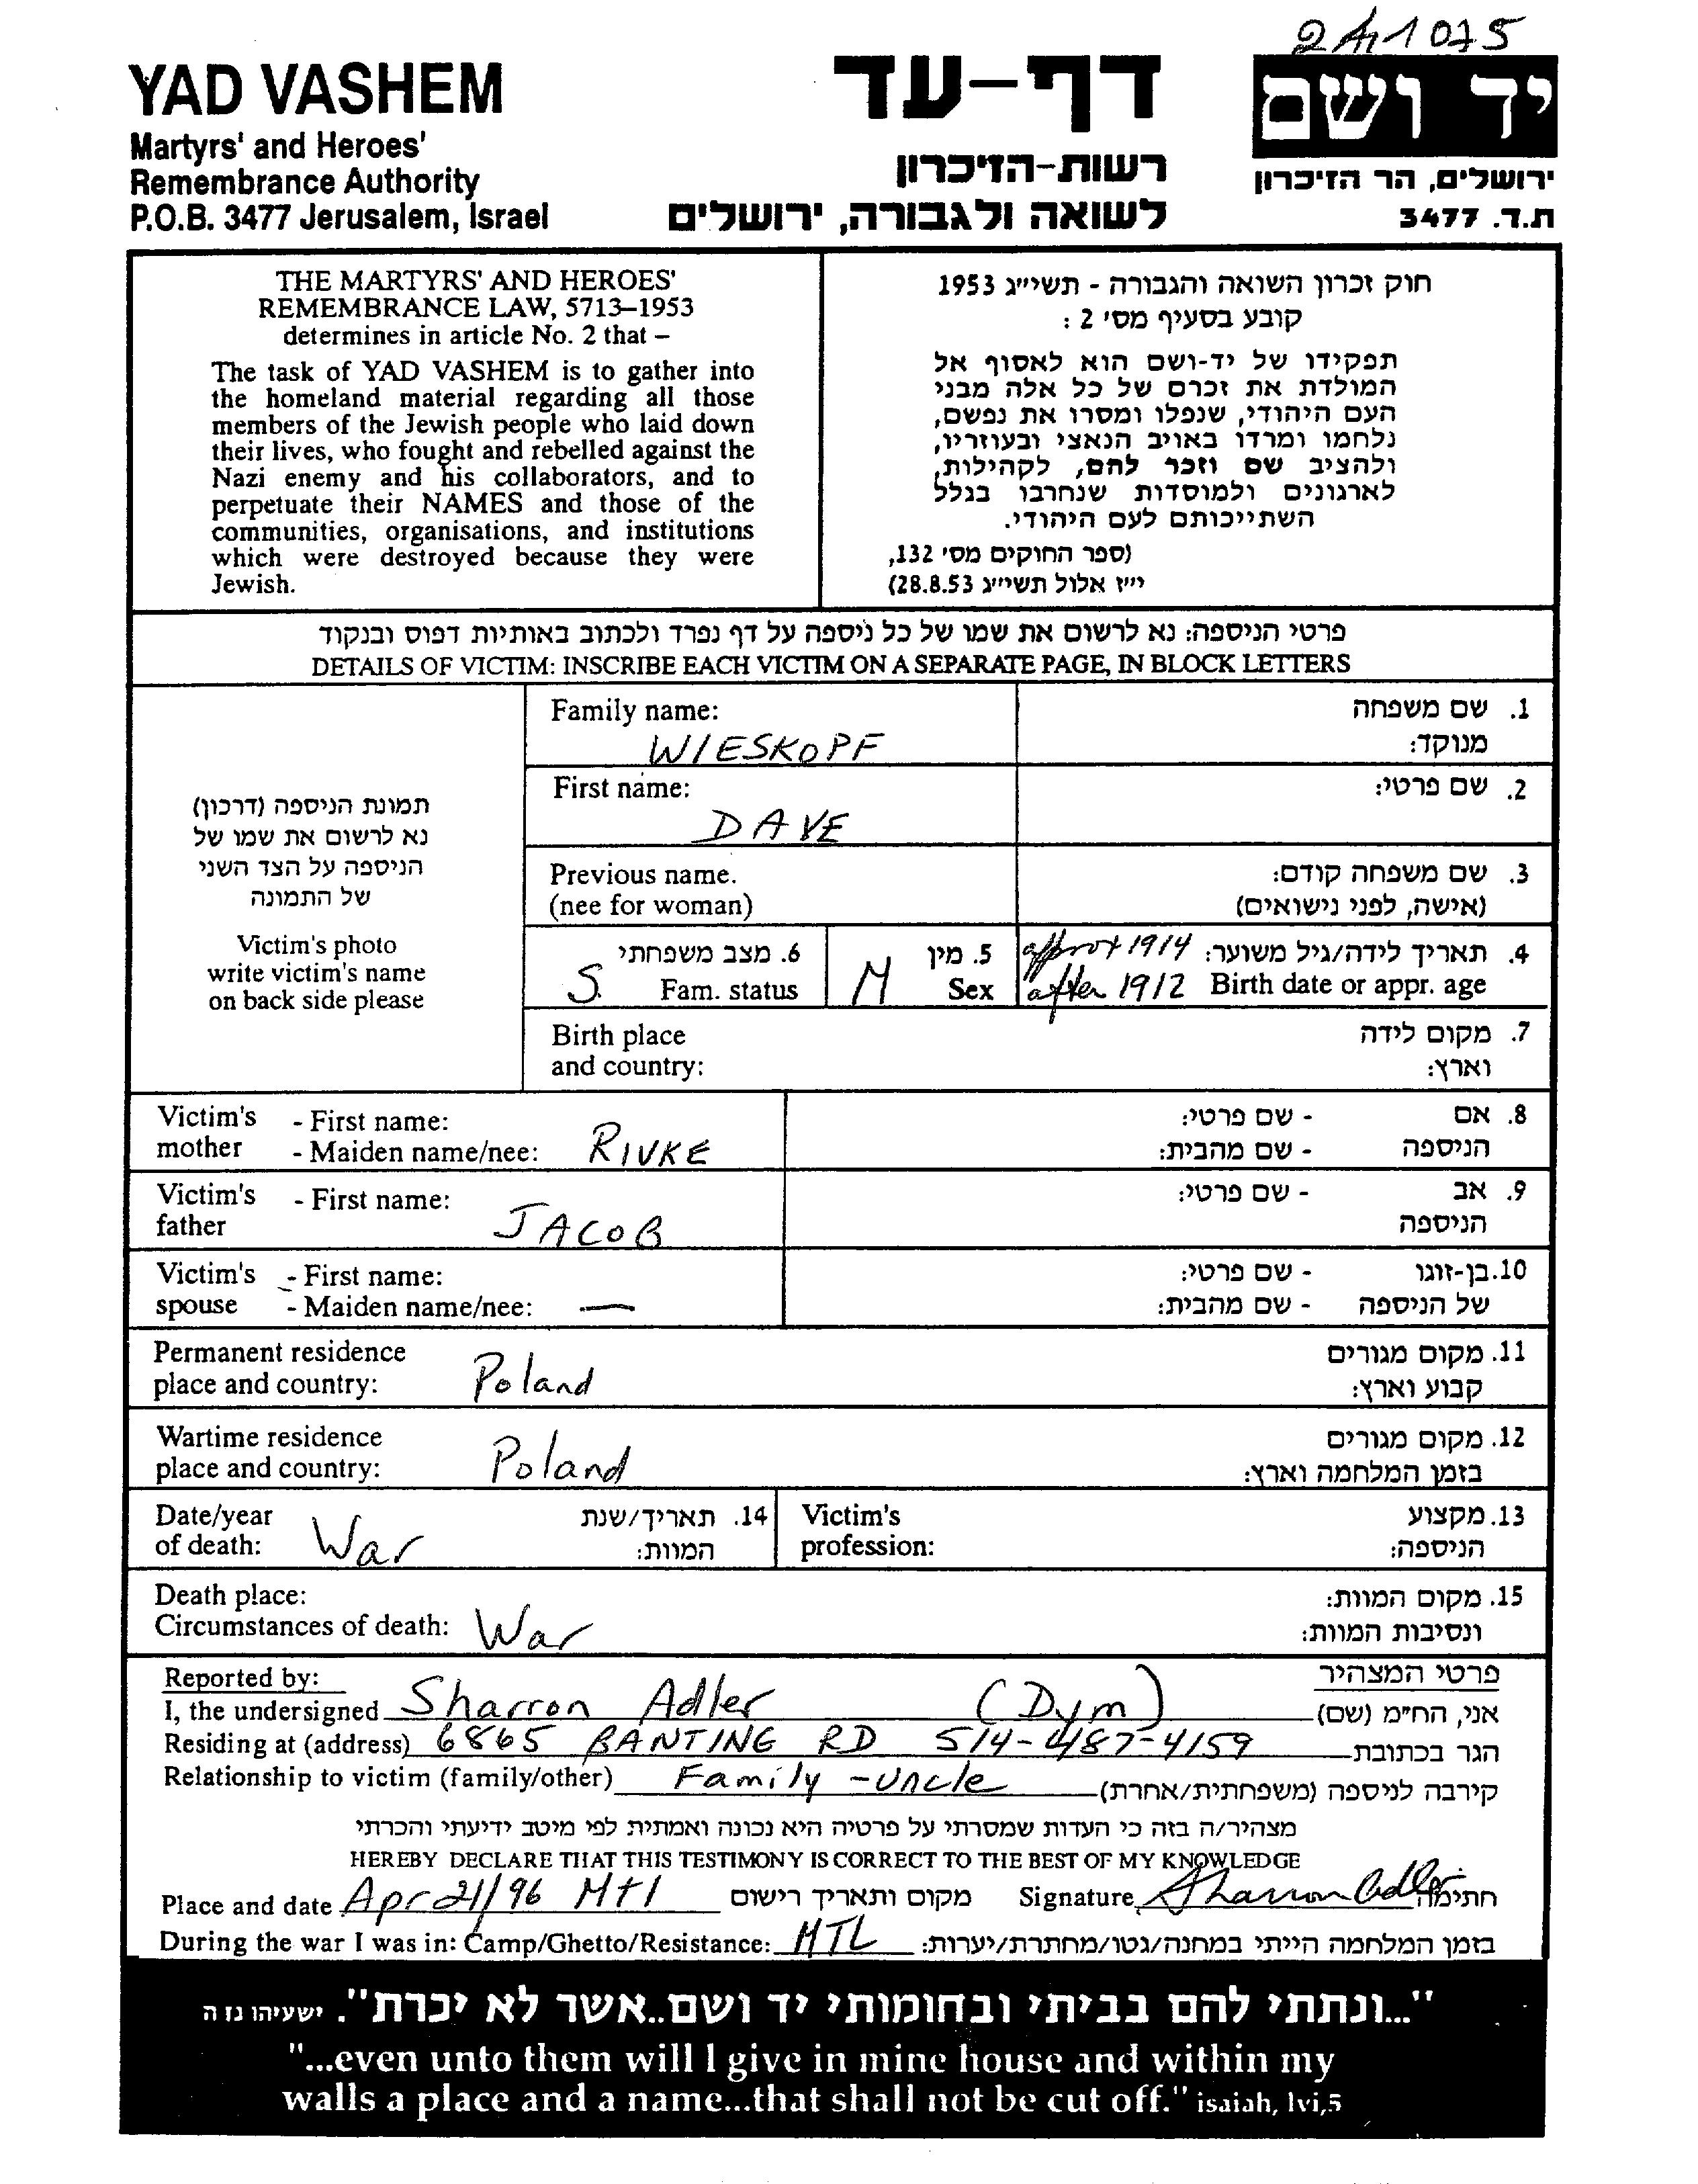 2A1075
YAD VASHEM
Martyrs' and Heroes'
Remembrance Authority
P.O.B. 3477 Jerusalem, Israel
דף-עד
רשות-הזיכרון
לשואה ולגבורה, ירושלים
יד ושם
ירושלים, הר הזיכרון
ת.ד. 3477
THE MARTYRS' AND HEROES'
REMEMBRANCE LAW, 5713–1953
determines in article No. 2 that –
The task of YAD VASHEM is to gather into
the homeland material regarding all those
members of the Jewish people who laid down
their lives, who fought and rebelled against the
Nazi enemy and his collaborators, and to
perpetuate their NAMES and those of the
communities, organisations, and institutions
which were destroyed because they were
Jewish.
חוק זכרון השואה והגבורה - תשי״ג 1953
קובע בסעיף מס׳ 2 :
תפקידו של יד-ושם הוא לאסוף אל
המולדת את זכרם של כל אלה מבני
העם היהודי, שנפלו ומסרו את נפשם,
נלחמו ומרדו באויב הנאצי ובעוזריו,
ולהציב שם וזכר להם, לקהילות,
לארגונים ולמוסדות שנחרבו בגלל
השתייכותם לעם היהודי.
(ספר החוקים מס׳ 132,
י״ז אלול תשי״ג 28.8.53)
פרטי הניספה: נא לרשום את שמו של כל ניספה על דף נפרד ולכתוב באותיות דפוס ובנקוד
DETAILS OF VICTIM: INSCRIBE EACH VICTIM ON A SEPARATE PAGE, IN BLOCK LETTERS
תמונת הניספה (דרכון)
נא לרשום את שמו של
הניספה על הצד השני
של התמונה
Victim's photo
write victim's name
on back side please
Family name: 1. שם משפחה
WIESKOPF מנוקד:
First name: 2. שם פרטי:
DAVE
Previous name. 3. שם משפחה קודם:
(nee for woman) (אישה, לפני נישואים)
6. מצב משפחתי 5. מין approx 1914 4. תאריך לידה/גיל משוער:
S. Fam. status M Sex after 1912 Birth date or appr. age
Birth place 7. מקום לידה
and country: וארץ:
Victim's - First name: - שם פרטי: 8. אם
mother - Maiden name/nee: RIVKE - שם מהבית: הניספה
Victim's - First name: - שם פרטי: 9. אב
father JACOB הניספה
Victim's - First name: - שם פרטי: 10. בן-זוגו
spouse - Maiden name/nee: — - שם מהבית: של הניספה
Permanent residence 11. מקום מגורים
place and country: Poland קבוע וארץ:
Wartime residence 12. מקום מגורים
place and country: Poland בזמן המלחמה וארץ:
Date/year 14. תאריך/שנת Victim's 13. מקצוע
of death: War המוות: profession: הניספה:
Death place: 15. מקום המוות:
Circumstances of death: War ונסיבות המוות:
Reported by: פרטי המצהיר
I, the undersigned Sharron Adler (Dym) אני, הח״מ (שם)
Residing at (address) 6865 BANTING RD 514-487-4159 הגר בכתובת
Relationship to victim (family/other) Family - uncle קירבה לניספה (משפחתית/אחרת)
מצהיר/ה בזה כי העדות שמסרתי על פרטיה היא נכונה ואמתית לפי מיטב ידיעתי והכרתי
HEREBY DECLARE THAT THIS TESTIMONY IS CORRECT TO THE BEST OF MY KNOWLEDGE
Place and date Apr 21/96 Mtl מקום ותאריך רישום Signature Sharron Adler חתימה
During the war I was in: Camp/Ghetto/Resistance: MTL בזמן המלחמה הייתי במחנה/גטו/מחתרת/יערות:
"...ונתתי להם בביתי ובחומותי יד ושם..אשר לא יכרת". ישעיהו נו ה
"...even unto them will I give in mine house and within my
walls a place and a name...that shall not be cut off." isaiah, lvi,5